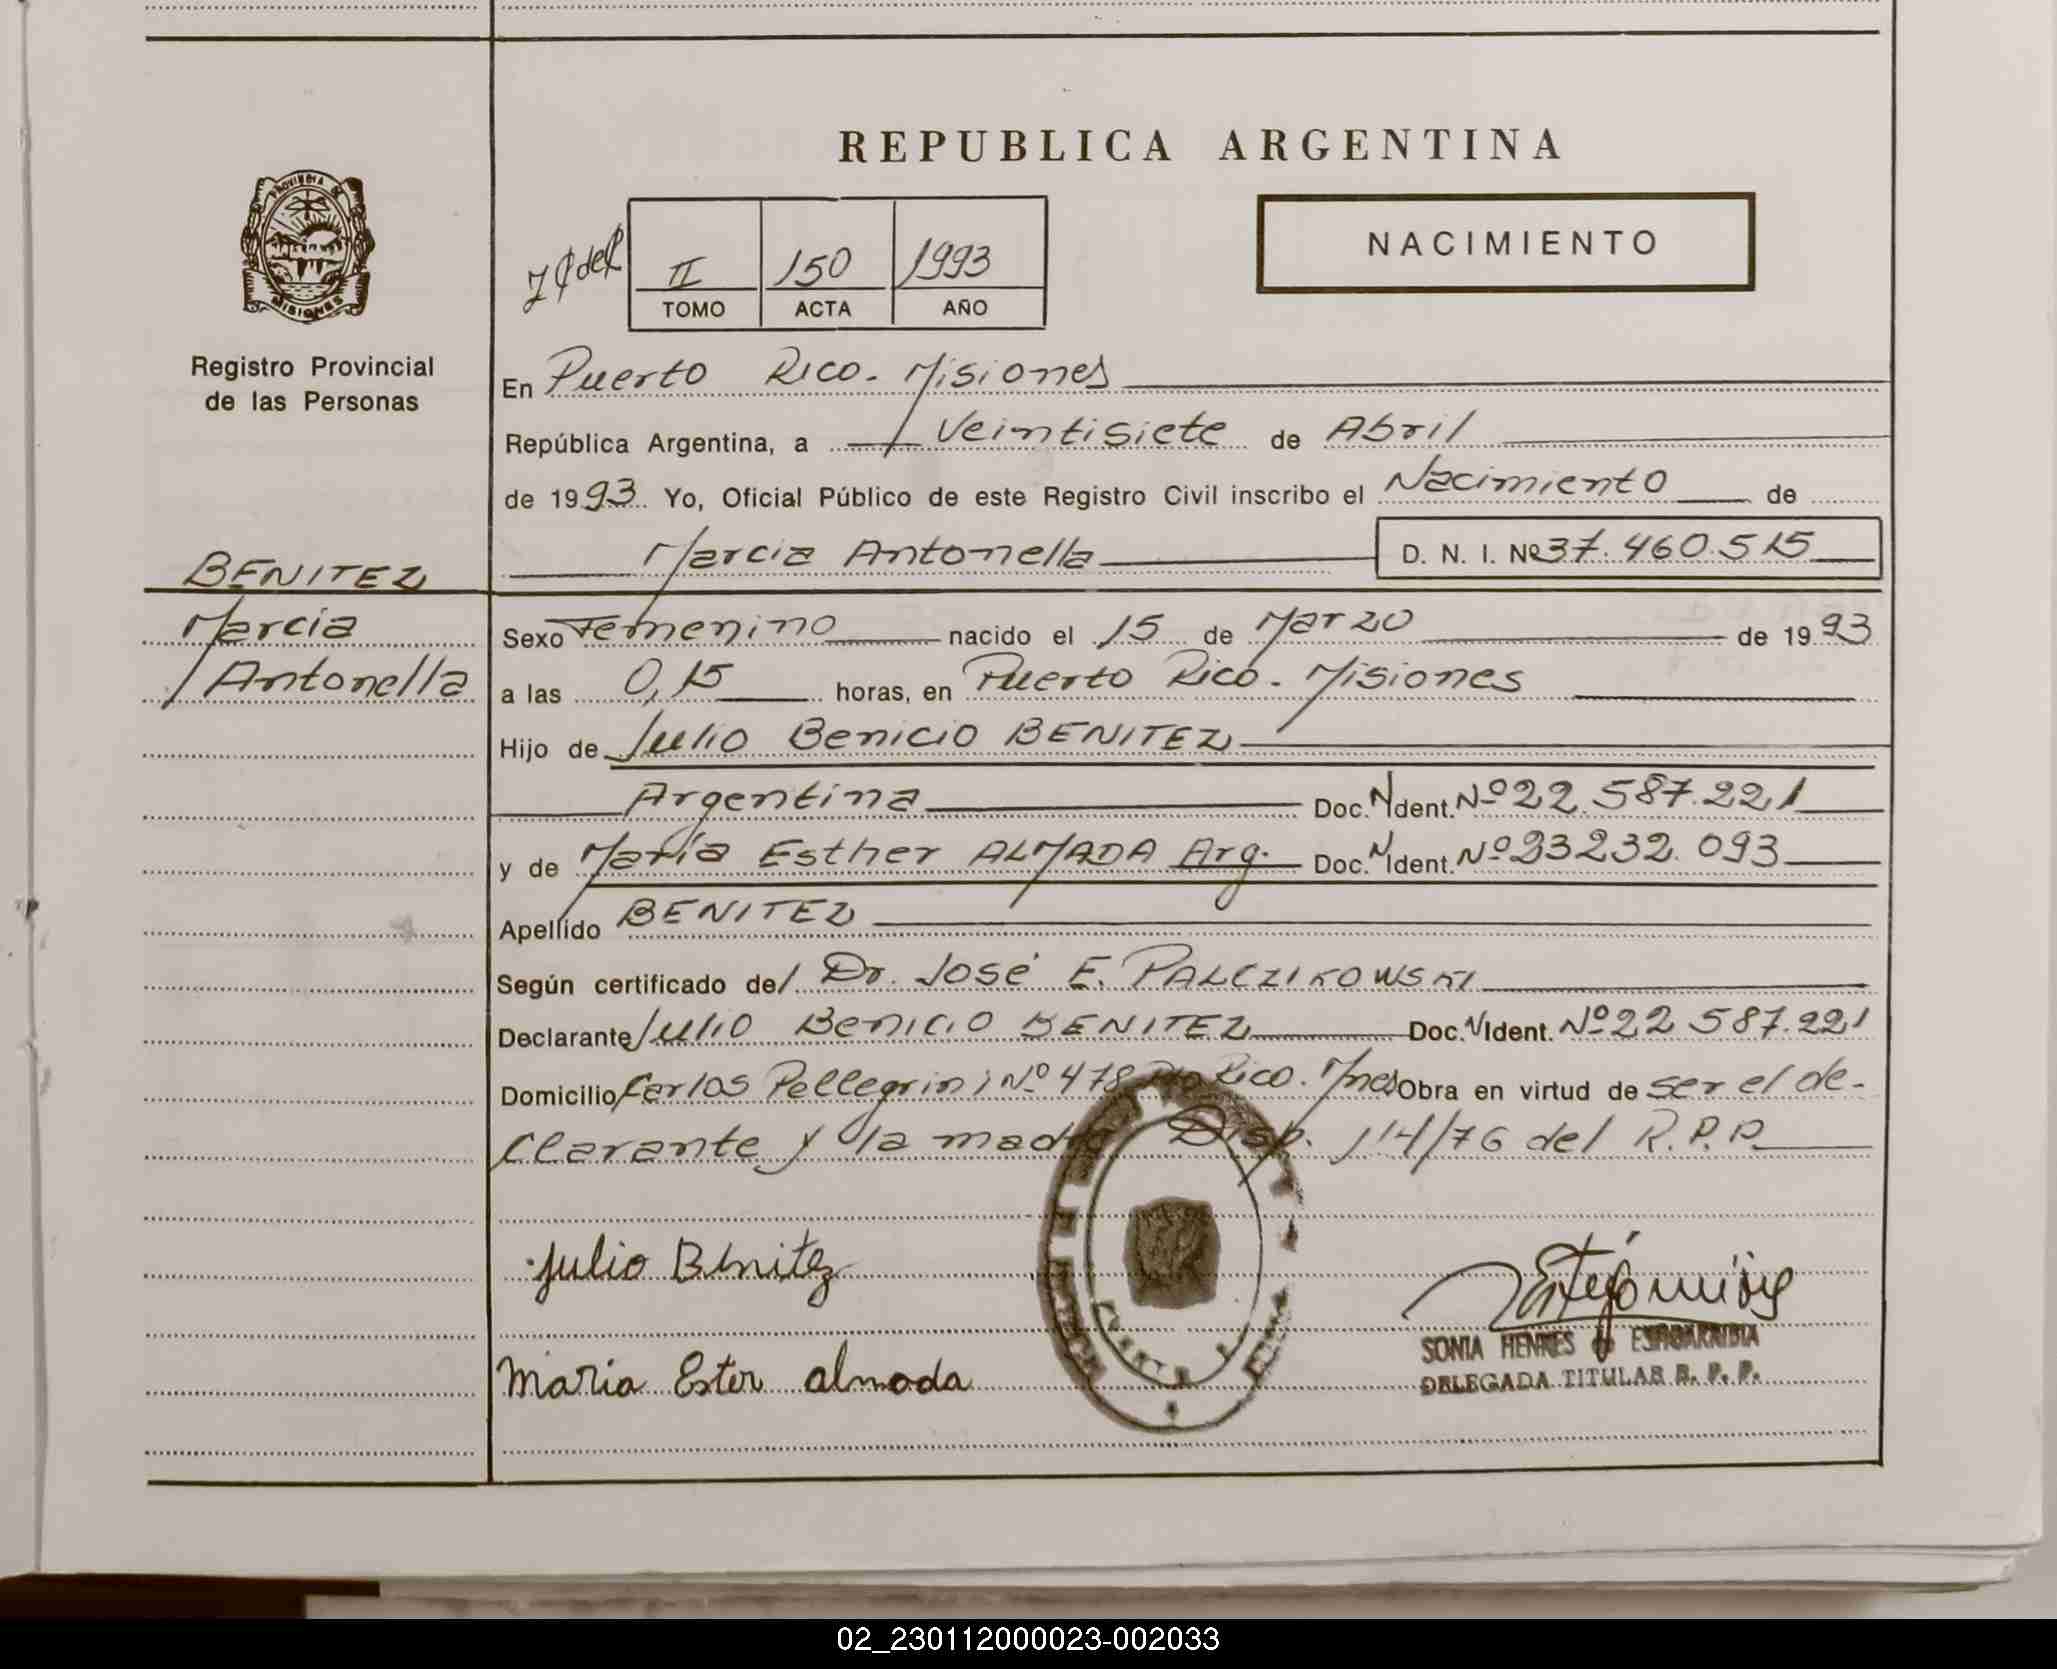 REPUBLICA ARGENTINA
PROVINCIA DE
MISIONES
Registro Provincial
de las Personas
II 150 1993
TOMO ACTA AÑO
NACIMIENTO
En Puerto Rico - Misiones
República Argentina, a Veintisiete de Abril
de 1993 Yo, Oficial Público de este Registro Civil inscribo el Nacimiento de
Marcia Antonella D. N. I. Nº 37.460.515
BENITEZ
Marcia
Antonella
Sexo Femenino nacido el 15 de Marzo de 1993
a las 0,15 horas, en Puerto Rico - Misiones
Hijo de Julio Benicio BENITEZ
Argentina Doc. N Ident. Nº 22.587.221
y de María Esther ALMADA Arg. Doc. N Ident. Nº 23232.093
Apellido BENITEZ
Según certificado del Dr. José E. PALCZIKOWSKI
Declarante Julio Benicio BENITEZ Doc. N Ident. Nº 22 587.221
Domicilio Carlos Pellegrini Nº 478 Pto Rico. Mnes Obra en virtud de ser el de-
clarante y la madre Disp. 114/76 del R.P.P.
Julio Benitez
Maria Ester almada
SONIA HENKES de
DELEGADA TITULAR R. P. P.
02_230112000023-002033